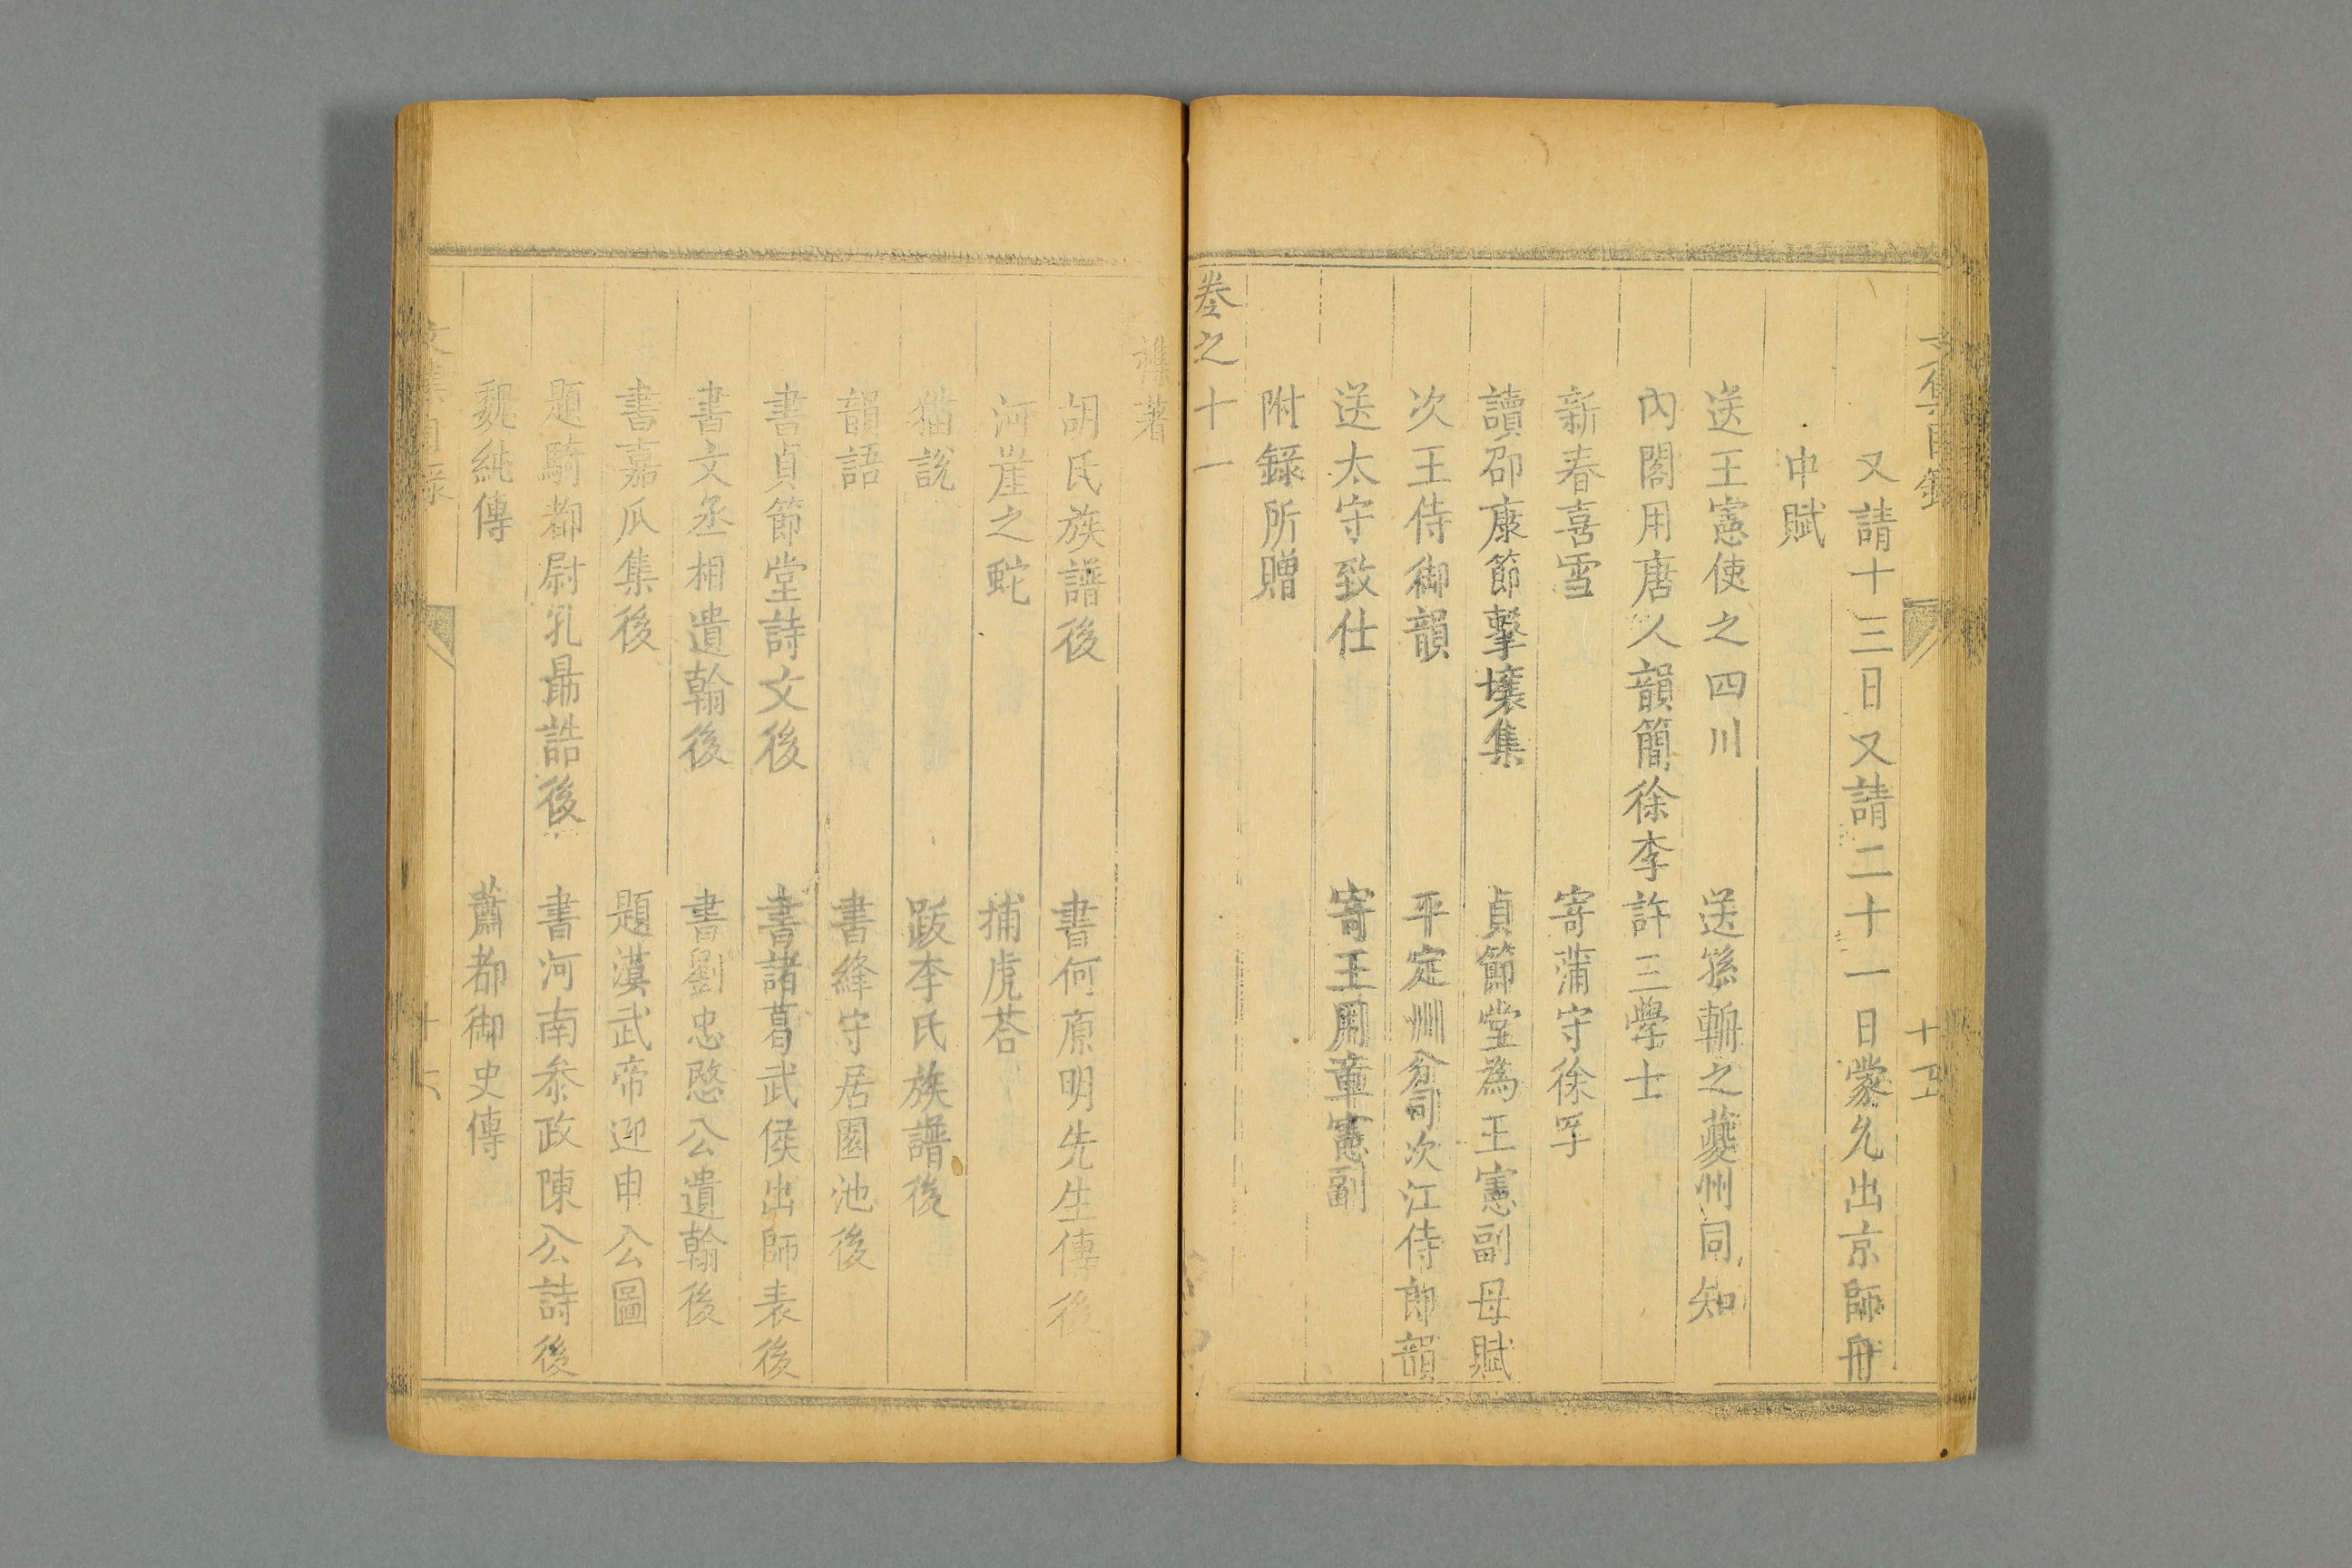 又請十三日又請二十一日蒙允出京師舟
中賦
送王憲使之四川 送孫斬之蕟州同知
內閣用唐人韻簡徐李許三學士
新春喜雪 寄蒲守徐孚
讀邵康節擊壤集 貞節堂為王憲副母賦
次王侍御韻 平定州分司次江侍郎韻
送太守致仕 寄王用章憲副
附錄所贈
卷之十一
襍著
胡氏族譜後 書何原明先生傳後
河崖之蛇 捕虎荅
猫說 跋李氏族譜後
韻語 書絳守居園池後
書貞節堂詩文後 書諸葛武侯出師表後
書文丞相遺翰後 書劉忠愍公遺翰後
書嘉瓜集後 題漢武帝迎申公圖
題騎都尉孔最誥後 書河南叅政陳公詩後
魏純傳 蕭都御史傳
文集目錄 十六